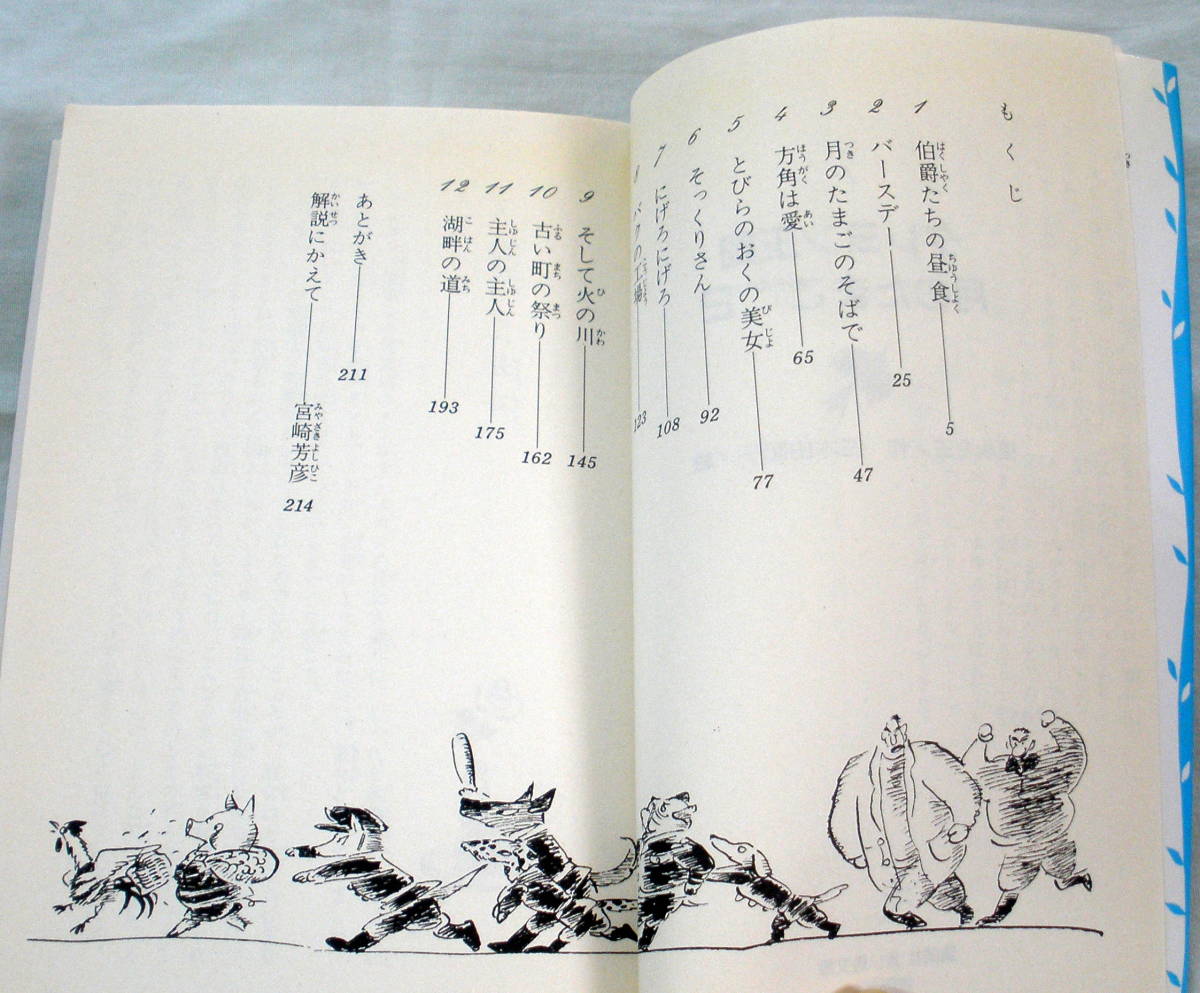 もくじ
1 伯爵たちの昼食 5
2 バースデー 25
3 月のたまごのそばで 47
4 方角は愛 65
5 とびらのおくの美女 77
6 そっくりさん 92
7 にげろにげろ 108
8 バクの工場 123
9 そして火の川 145
10 古い町の祭り 162
11 主人の主人 175
12 湖畔の道 193
あとがき 211
解説にかえて 宮崎芳彦 214